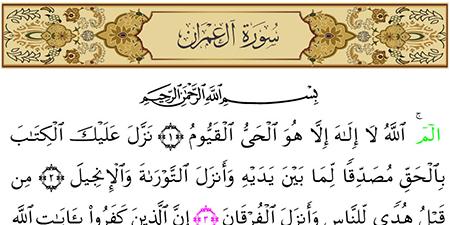 سُورَةُ آلِ عِمْرَان
بِسْمِ ٱللَّهِ ٱلرَّحْمَٰنِ ٱلرَّحِيمِ
الٓمٓ ۚ ٱللَّهُ لَا إِلَٰهَ إِلَّا هُوَ ٱلْحَىُّ ٱلْقَيُّومُ ﴿١﴾ نَزَّلَ عَلَيْكَ ٱلْكِتَٰبَ
بِٱلْحَقِّ مُصَدِّقًا لِّمَا بَيْنَ يَدَيْهِ وَأَنزَلَ ٱلتَّوْرَىٰةَ وَٱلْإِنجِيلَ ﴿٢﴾ مِن
قَبْلُ هُدًى لِّلنَّاسِ وَأَنزَلَ ٱلْفُرْقَانَ ﴿٣﴾ إِنَّ ٱلَّذِينَ كَفَرُوا۟ بِـَٔايَٰتِ ٱللَّهِ